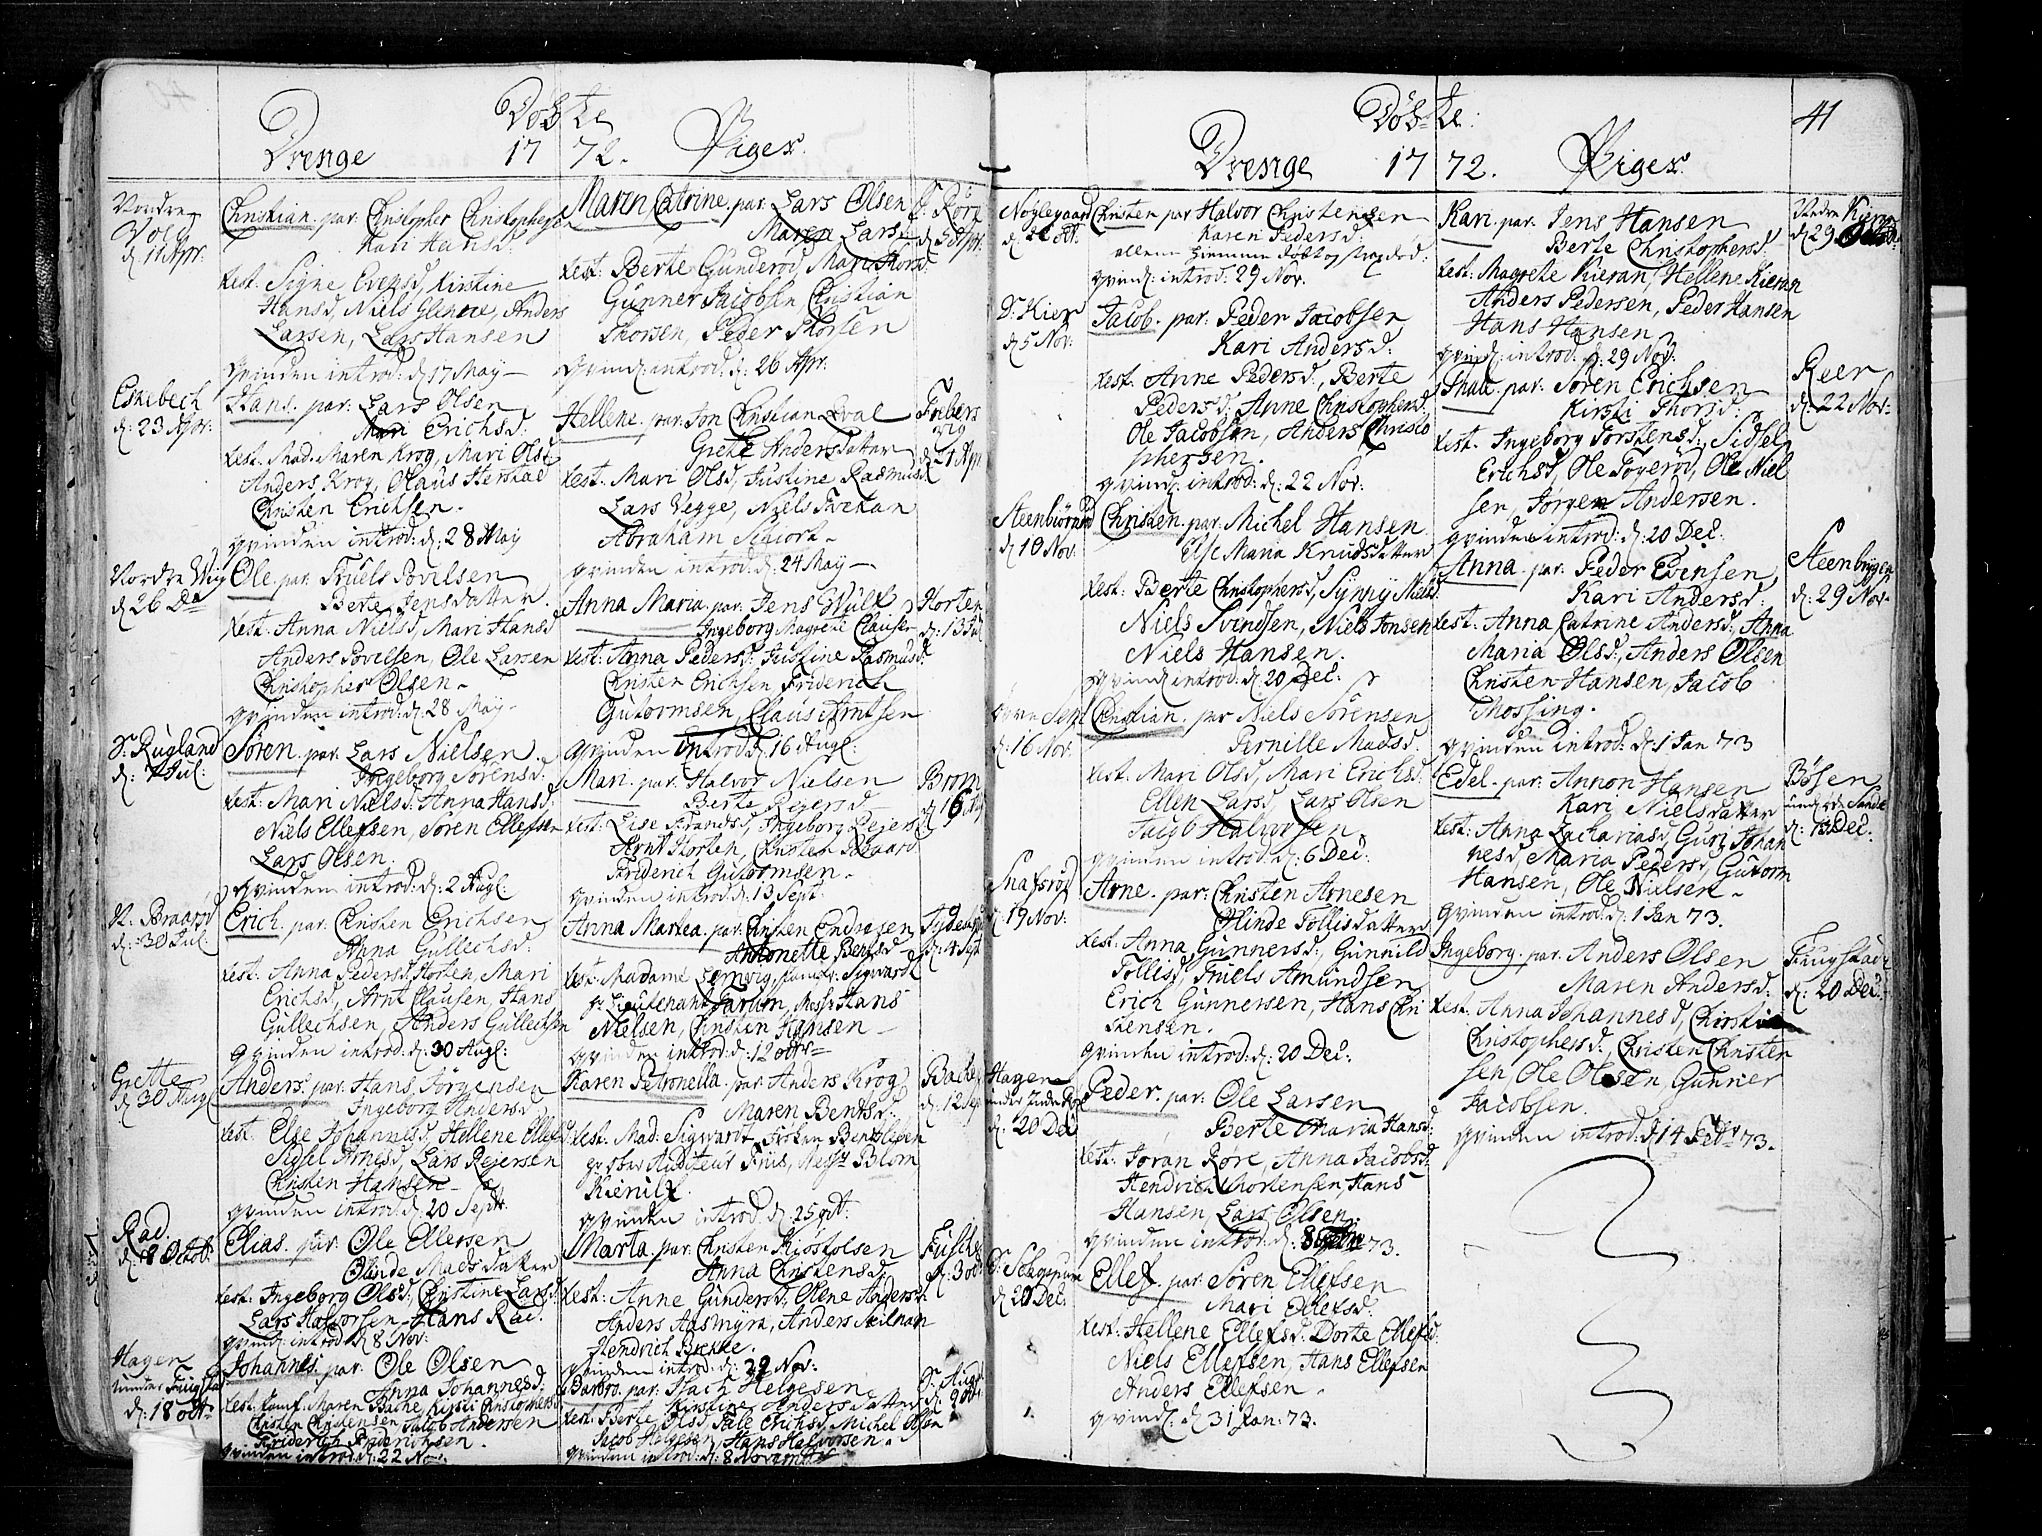 Døbte
Drenge 17 72. Piger.
Vondre
Vold
d. 11 Apr.
Christian. par. Christopher Christophersen
Kari Hansd.
test. Signe Evensd, Kirstine
Hansd, Niels Glenne, Anders
Larsen, Lars Hansen
Qvinden introd: d. 17 May
Eskebech
d: 23 Apr:
Hans. par: Lars Olsen
Mari Erichsd:
test. Mad. Maren Krog, Mari Olsd.
Anders Krog, Olaus Herstad
Christen Erichsen.
qvinden introd: d: 28 May
Vordre Wiig
d. 26 Do
Ole. par. Truels Povelsen
Berte Jensdatter.
test. Anna Nielsd, Mari Hansd
Anders Povelsen, Ole Larsen
Christopher Olsen
qvinden introd: d. 28 May
S. Rugland
d: 7 Jul:
Søren. par. Lars Nielsen
Ingeborg Sørensd:
test: Mari Nielsd: Anna Hansd:
Niels Ellefsen, Søren Ellefsen
Lars Olsen.
qvinden introd: d: 2 Aug:
N. Braarød
d: 30 Jul:
Erich. par. Christen Erichsen
Anna Gullechsd:
test: Anna Pedersd Horten, Mari
Erichsd, Arnt Clausen, Hans
Gullechsen, Anders Gullechsen
Qvinden introd: d. 30 Aug:
Grette
d. 30 Aug
Anders. par. Hans Jørgensen
Ingeborg Andersd
test. Else Johannesd, Hellene Ellefsd
Sidsel Arnesd, Lars Rejersen
Christen Hansen
qvinden introd: d. 20 Sept.
Rad.
d. 8 Octob
Elias. par. Ole Ellefsen
Olinde Madsdatter
test: Ingeborg Olsd, Christine Larsd:
Lars Halvorsen, Hans Rad.
qvind: introd d 8 Nov:
Hagen
under Fuugstad
d: 18 oct
Johannes. par. Ole Olsen
Anna Johannesd:
test. Jomf. Maren Bache, Kirsti Christophersd
Christen Christensen, Jacob Andersen
Friderich Friderichsen.
qvinden introd: d: 22 Nov.
Maren Catrine. par: Lars Olsen
Maren Larsd
S. Rørе
d. 5 Apr.
test: Berte Gunderød, Mari Thorsd.
Gunner Jacobsen Christian
Thorsen, Peder Thorsen
Qvind: introd: d: 26 Apr:
Hellene. par. Jon Christian Eval
Grete Andersdatter
d. 21 Apr.
test: Mari Olsd, Justine Rasmusd:
Lars Vegge, Niels Tvetan
Abraham
qvinden introd: d. 24 May
Anna Maria. par. Jens Wulf
Ingeborg Magrete Clausen
Horten
d: 13 Jul
test: Anna Pedersd: Justine Rasmusd:
Christen Erichsen, Friderich
Gutormsen, Claus Arntsen
Qvinden introd: d. 16 Aug:
Mari. par. Halvor Nielsen
Berte Rejersd
Brom
test: Lise Frandsd, Ingeborg Rejers
Arnt Horten, Christen
Friderich Gutormsen
qvinden introd: d: 13 Sept
Anna Martea. par. Christen Endresen
Antonette Bentsd
test: Madame Lemvig, Jomfr. Sigvardt
hr Lieutenant Garben, Mosr Hans
Nielsen, Christen Hansen
qvinden introd: d: 12 octr
Karen Petronella. par. Anders Krog
Maren Bentsd:
Backe
d. 12 Sep
test: Mad: Sigwardt, Frøken Bentzleben
Auditeur Friis, Mosr Blom
Kierulf.
qvinden introd: d. 25 oct:
Marta. par. Christen Kiøstolsen
Anna Christensd.
d. 3 oct
test: Anne Gundersd, Olene Andersd.
Anders Aasmyra, Anders
Hendrich Brekke.
qvinden introd: d: 29 Nov:
Barbro. par. Isach Helgesen
Kirstine Andersdatter
test. Berte Olsd, Pale Erichsd, Michel Olsen
Jacob Helgesen, Hans Halvorsen.
qvinden introd: d: 8 Novembr
Døbte.
41
Drenge 17 72. Piger.
Nøglegaard
d. 22 oct.
Christen par Halvor Christensen
Karen Pedersd.
allene hiemme døbt og strax død.
qvind: introd: 29 Nov.
D. Kier
d 5 Nov:
Jacob. par. Peder Jacobsen
Kari Andersd:
test. Anne Pedersd, Berte
Pedersd: Anne Christophersd.
Ole Jacobsen, Anders Christo
phersen.
qvind: introd: d: 22 Nov:
Steenbiørnrød
d 10 Nov:
Christen. par. Michel Hansen
Else Maria Knudsdatter
test: Berte Christophersd, Synnj Nielsd.
Niels Svendsen, Niels Jonsen
Niels Hansen.
qvind introd: d: 20 Dec:
d. 16 Nov.
Christian. par Niels Sørensen
Pernille Madsd.
test: Mari Olsd, Mari Erichsd.
Ellen Larsd, Lars Olsen
Jacob Halvorsen.
qvinden introd: d: 6 Dec:
Snafsrød
d. 19 Nov:
Arne. par: Christen Arnesen
Olinde Tollisdatter
test: Anna Gunnersd; Gunnild
Tollisd, Truels Amundsen
Erich Gunnersen, Hans Chri
stensen.
qvinden introd: d: 20 Dec:
Hagen
d: 20 Dec
Peder. par: Ole Larsen
Berte Maria Hansd:
test: Jøran Røre, Anna Jacobsd.
Hendrich Mortensen, Hans
Hansen, Lars Olsen.
qvinden introd: d: 8 73.
d 20 Dec:
Ellef. par: Søren Ellefsen
Mari Ellefsd.
test: Hellene Ellefsd. Dorte Ellefsd.
Niels Ellefsen, Hans Ellefsen
Anders Ellefsen.
qvind: d 31 Jan: 73.
Kari. par. Jens Hansen
Berte Christophersd.
Vestre Kieran
d 29
test: Magrete Kieran, Hellene Kieran
Anders Pedersen, Peder Hansen
Hans Hansen
qvind: introd: d: 29 Nov:
Thale. par: Søren Erichsen
Kirsti Thorsd:
Reer
d: 22 Nov:
test. Ingeborg Torstensd; Sidsel
Erichsd, Ole Toverød, Ole Niel
sen, Jørgen Andersen.
qvinden introd: d: 20 Dec:
Anna. par. Peder Evensen
Kari Andersd:
Steenbrygen
d: 29 Nov.
test: Anna Catrine Andersd; Anna
Maria Olsd, Anders Olsen
Christen Hansen, Jacob
Mossing.
qvinden introd: d. 1 Jan 73
Edel. par. Annon Hansen
Kari Nielsdatter
Bøsen
under
Dec:
test: Anna Zachariasd, Gurj Johan
nesd, Maria Pedersd, Gutorm
Hansen, Ole Nielsen
qvinden introd: d. 1 Jan 73.
Ingeborg. par. Anders Olsen
Maren Andersd:
Fuugstad
d: 20 Dec:
test: Anna Johannesd, Christine
Christophersd, Christen Christen
sen, Ole Olsen, Gunner
Jacobsen.
qvinden introd: d 14 Febr 73.